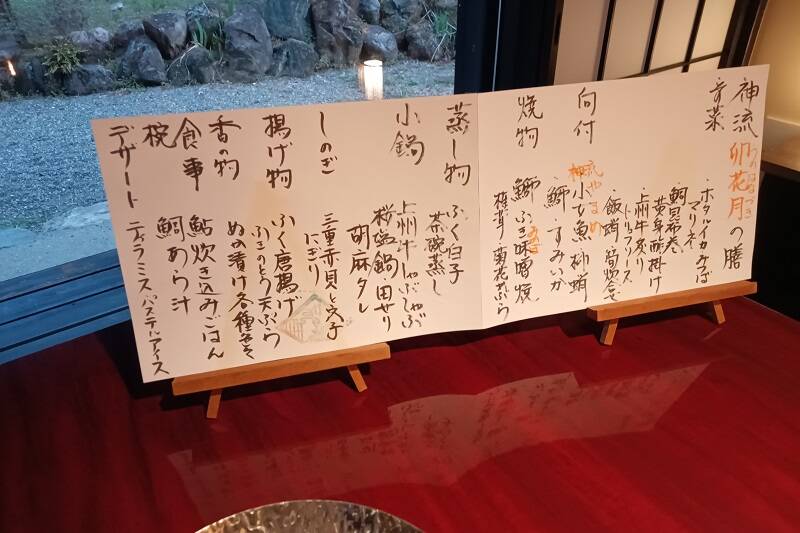 神流 卯花月の膳
うのはなづき
前菜
ホタルイカみそば
マリネ
鯛昆布巻
黄身酢掛け
上州牛炙り
トリュフソース
飯蛸
向付
小ひ魚 柳蛸
鰤 すみいか
焼物
鰤 ふき味噌焼
菊花かぶら
蒸し物
ふく白子
茶碗蒸し
小鍋
上州牛しゃぶしゃぶ
桜塩鍋 田せり
胡麻タレ
しのぎ
三重赤貝と穴子
にぎり
揚げ物
ふく唐揚げ
ふきのとう天ぷら
香の物
ぬか漬け各種
食事
鮎炊き込みごはん
椀
鯛あら汁
デザート
ティラミス パステルアイス